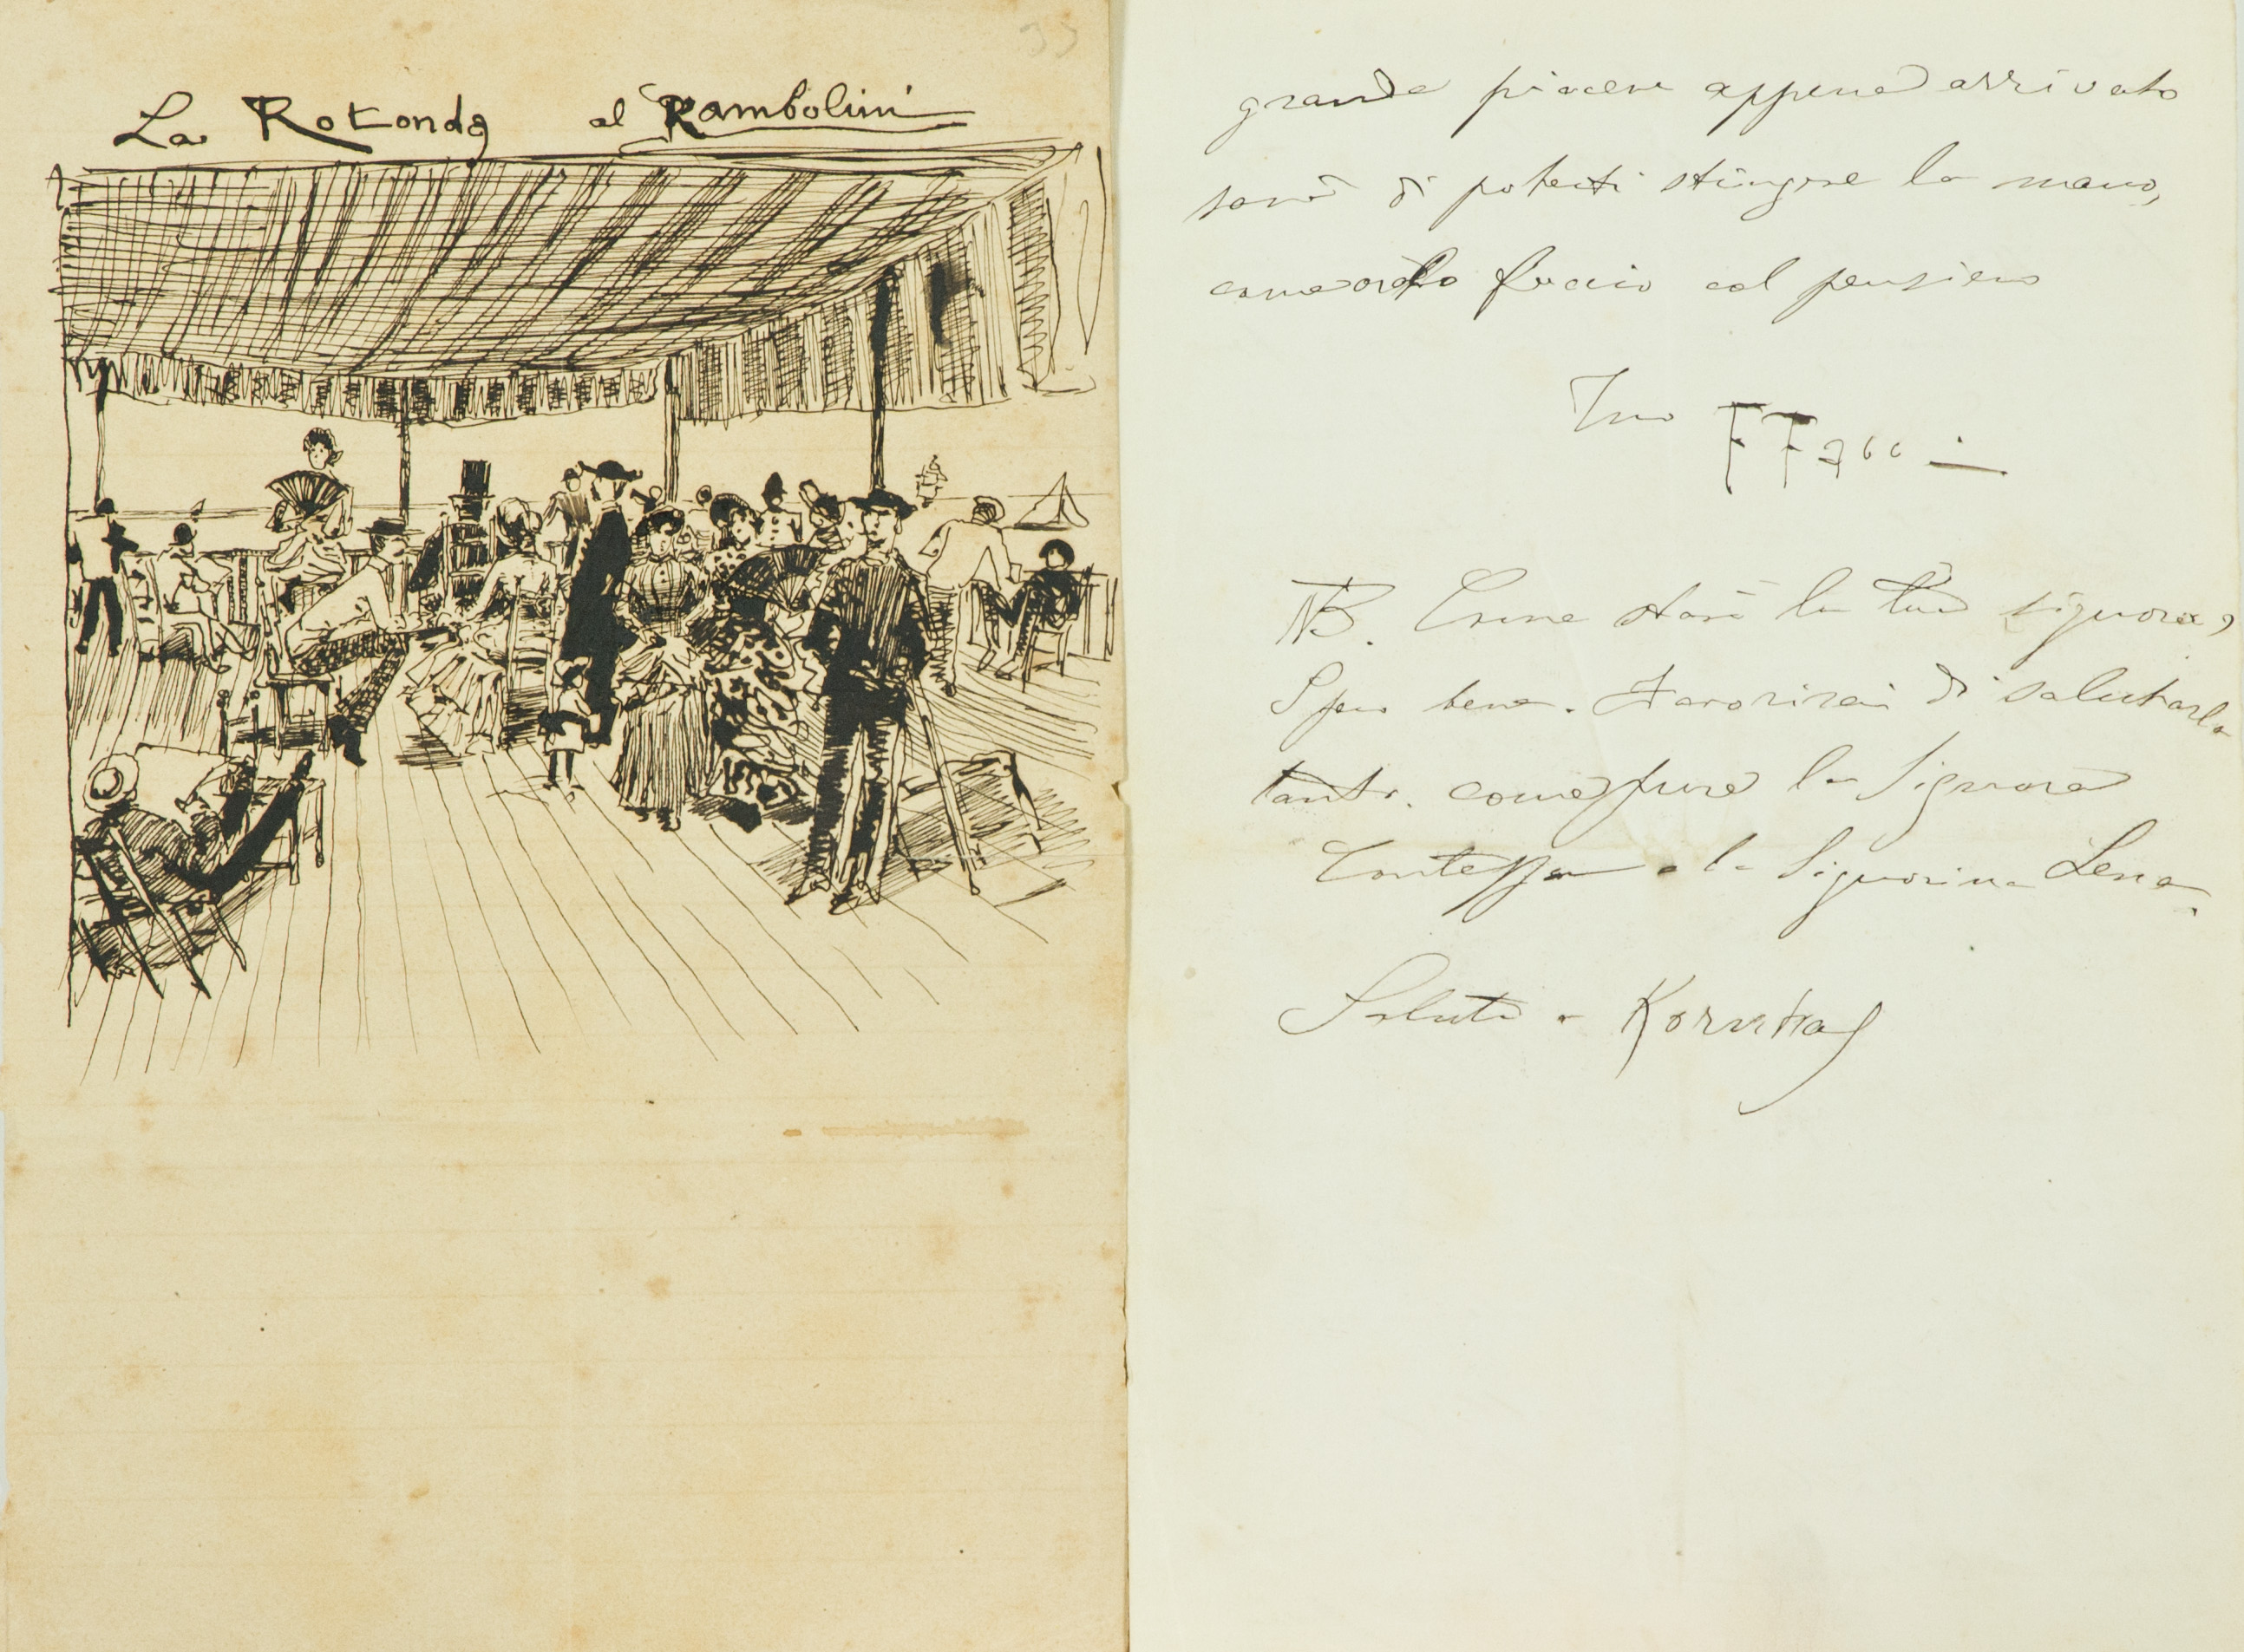 35
La Rotonda al Rambolini
grande piacere appena arrivato
sarà di poterti stringere la mano,
come ora lo faccio col pensiero
Tuo FFacci
NB. Come starà la tua signora,
Spero bene. Favorirai di salutarla
tanto. come pure la Signora
Contessa e la Signorina Lena.
Saluti a